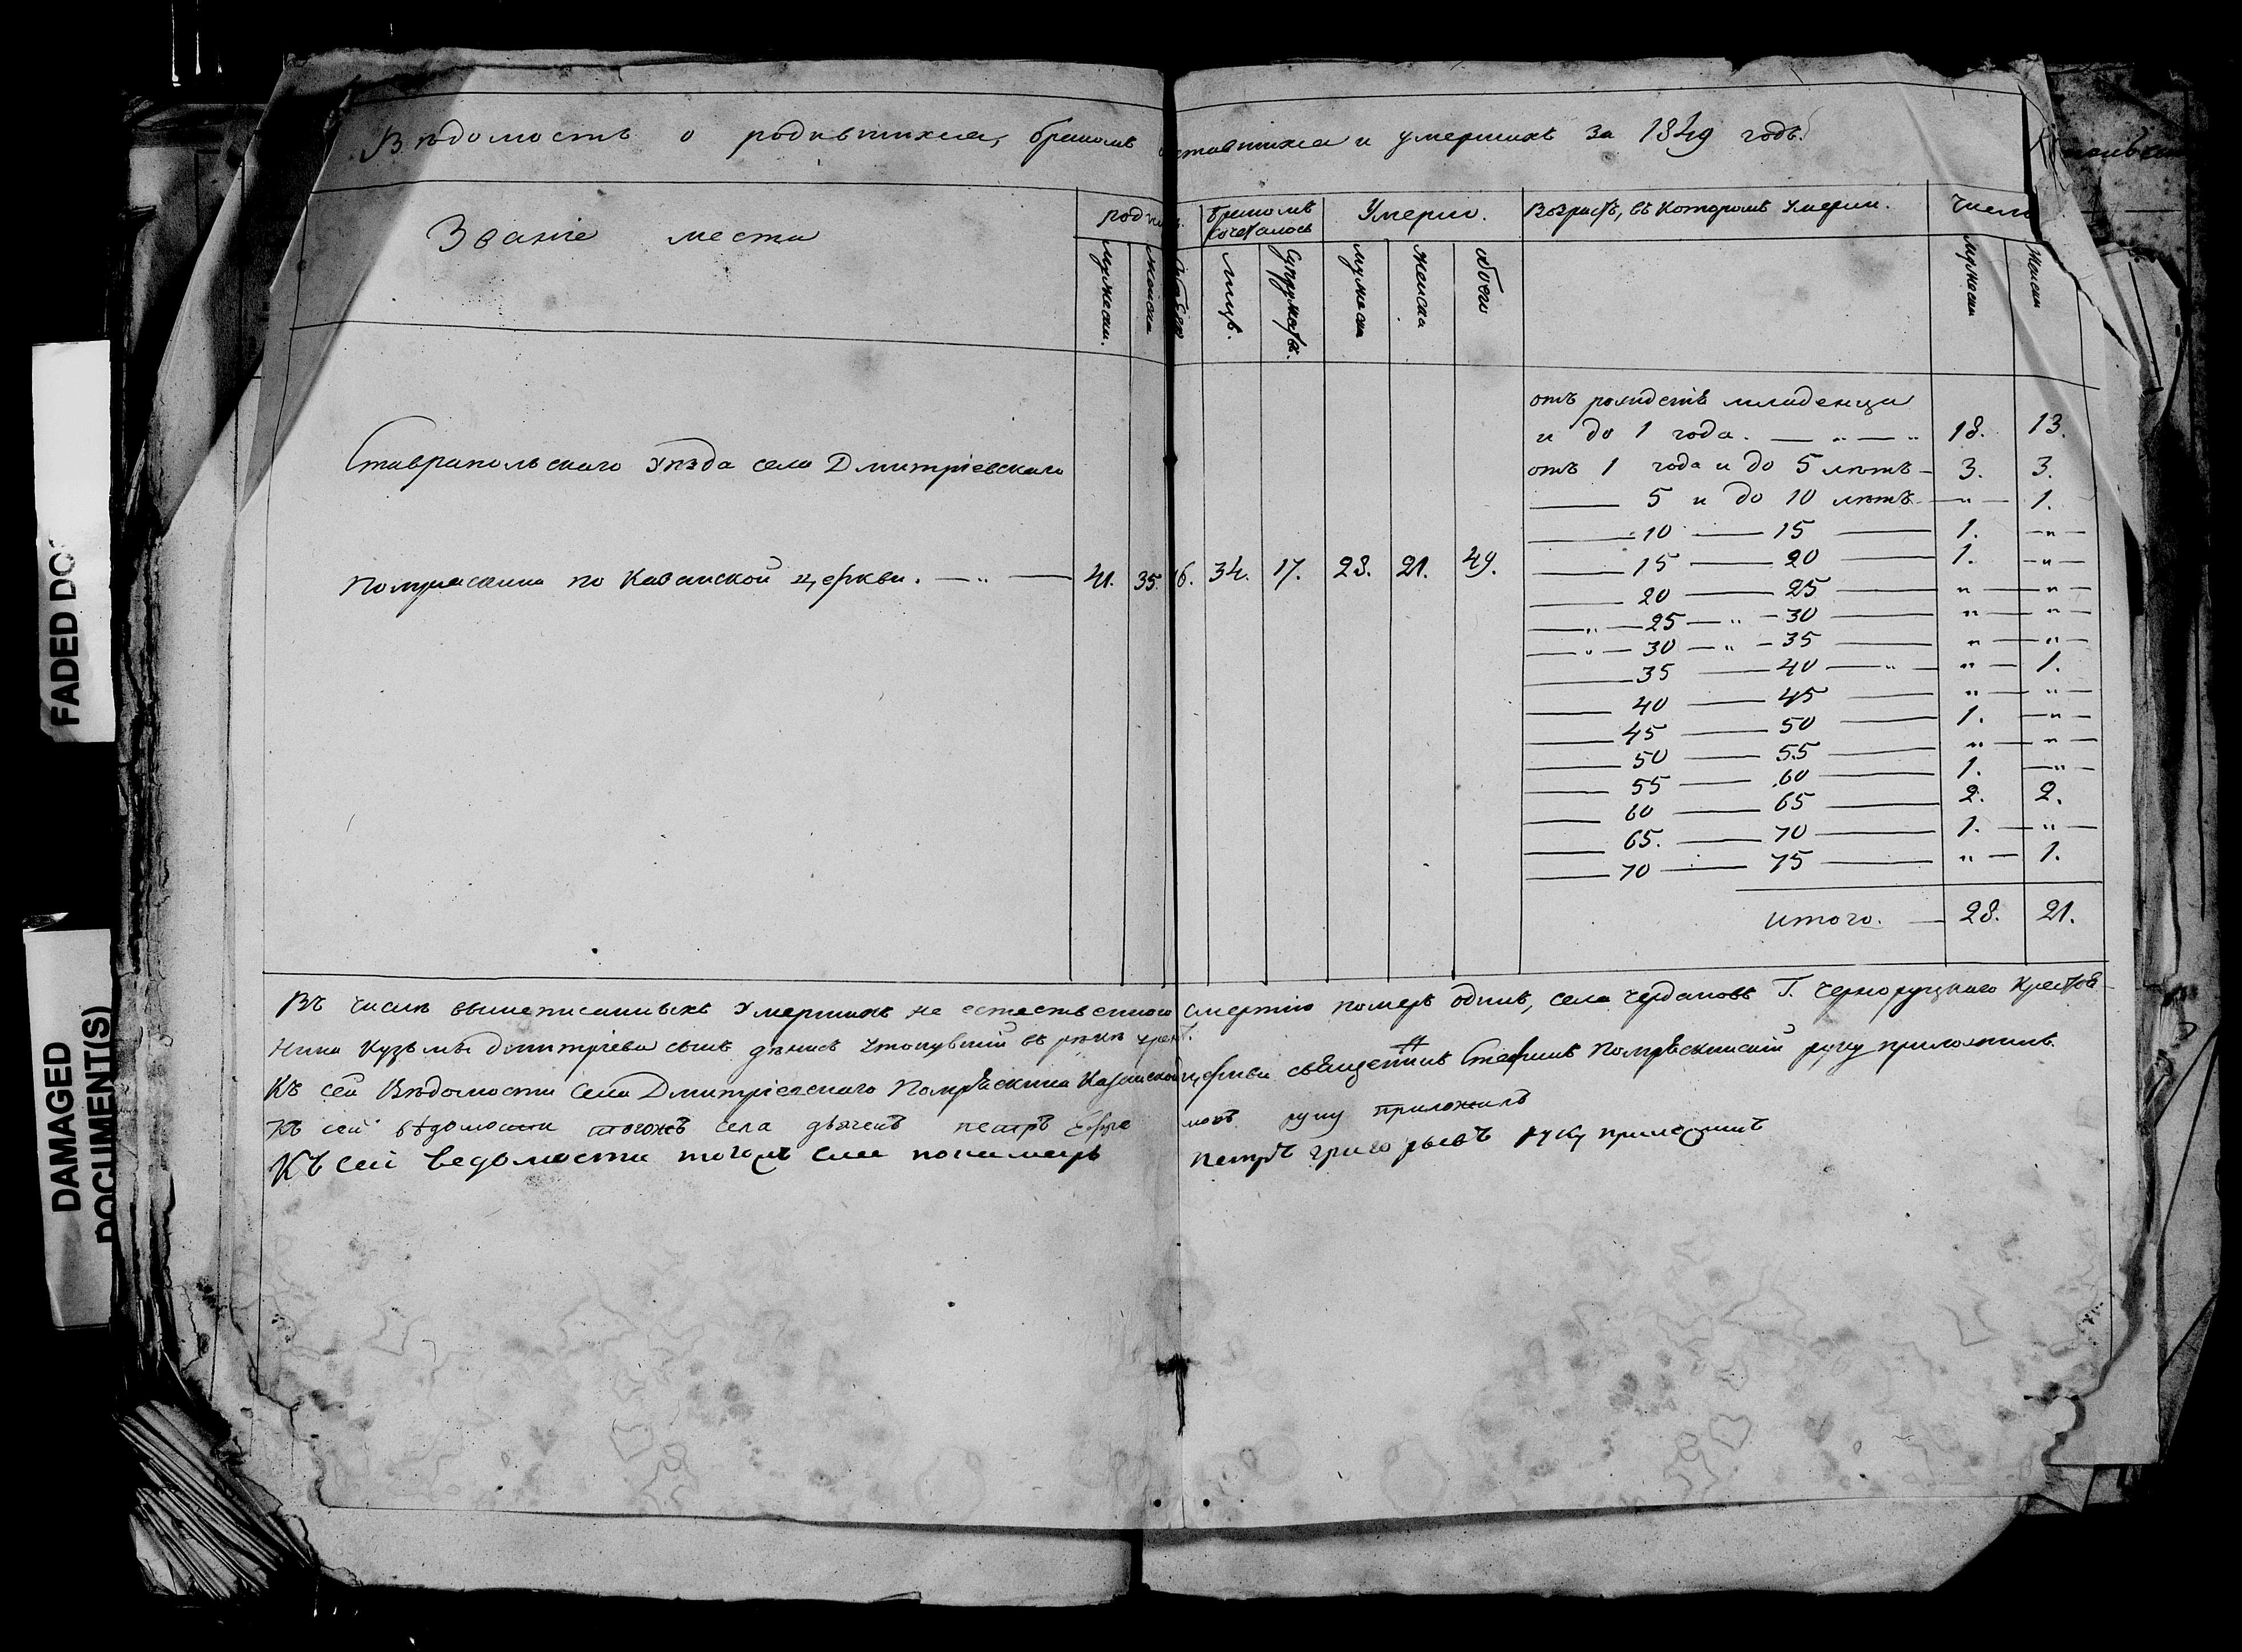 FADED DO
DAMAGED
DOCUMENT(S)
Вѣдомость о родившихся, бракомъ и умершихъ за 1849 годъ.
Званіе места
бракомъ сочеталось
Умерло.
Возрастъ, въ которомъ Умерли.
Число
мужеск.
женска
лицъ.
Супружествъ.
мужеска
женска
обоего
мужеска
женска
отъ рождетв младенца
и до 1 года. — „ — „ 18. 13.
Ставрапольскаго Уѣзда села Дмитріевскаго
отъ 1 года и до 5 лѣтъ — 3. 3.
— 5 и до 10 лѣтъ — „ — 1.
— 10 — 15 — 1. — „ —
Помряскина по Казанской церкви. — „ — 41. 35. 34. 17. 28. 21. 49.
— 15 — 20 — 1. — „ —
— 20 — 25 — „ — „ —
— „ — 25 — „ — 30 — „ — „ —
— „ — 30 — „ — 35 — „ — „ —
— 35 — 40 — „ — „ — 1.
— 40 — 45 — „ — „ —
— 45 — 50 — 1. — „ —
— 50 — 55 — „ — „ —
— 55 — 60 — 1. — „ —
— 60 — 65 — 2. 2.
— 65. — 70 — 1. — „ —
— 70 — 75 — „ — 1.
итого. — 28. 21.
Въ числѣ вышеписанныхъ Умершихъ не естественною смертію померъ одинъ, села Чердаковъ Г. Черноруцкаго Крестья-
нина Кузьмы Дмитріева сынъ утонувшій въ рѣкѣ
Къ сей Вѣдомости села Дмитріевскаго Помряскина Казанской церкви священникъ Стефанъ Помряскинскій руку приложилъ.
Къ сей вѣдомости тогожъ села дьячекъ петръ руку приложилъ
Къ сей ведомости тогожъ села понамарь петръ григорьевъ руку приложилъ